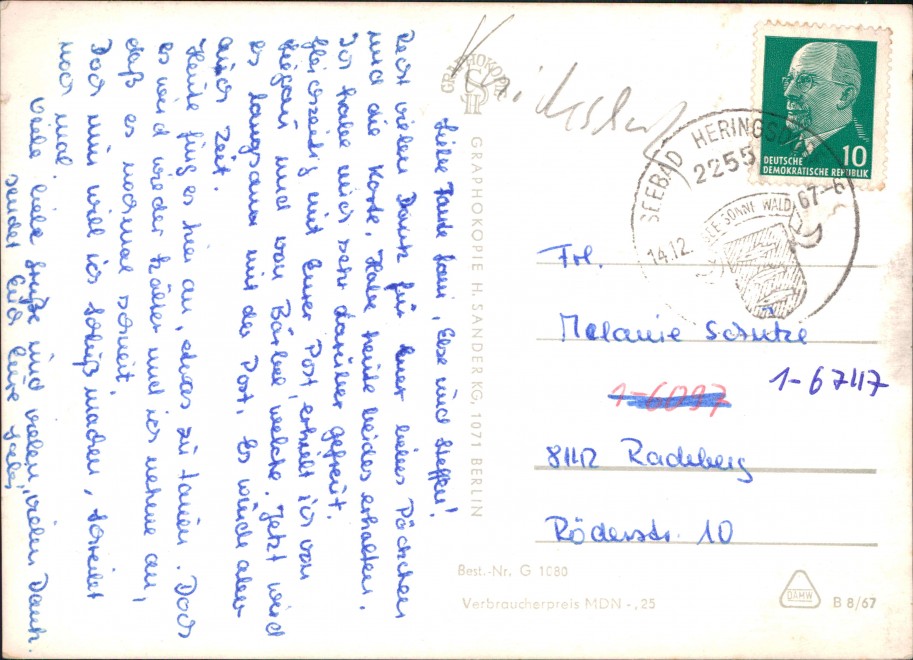 Liebe Tante Lani, Else und Steffen!
Recht vielen Dank für Euer liebes Päckchen
und die Karte. Habe heute beides erhalten.
Ich habe mich sehr darüber gefreut.
Gleichzeitig mit Eurer Post erhielt ich von
und von Bärbel welche. Jetzt wird
es langsam mit der Post. Es wurde aber
auch Zeit.
Heute fing es hier an, etwas zu tauen. Doch
es wird wieder kälter und ich nehme an,
daß es nochmal schneit.
Doch nun will ich Schluß machen, schreibt
noch mal.
Viele liebe Grüße und vielen, vielen Dank
sendet Euch Eure
GRAPHOKOPIE
GRAPHOKOPIE H. SANDER KG, 1071 BERLIN
SEEBAD HERINGSDORF
2255
14.12. 67-6
SEE SONNE WALD
10
DEUTSCHE
DEMOKRATISCHE REPUBLIK
Frl.
Melanie Schutze
1-6097
1-67117
8142 Radeberg
Röderstr. 10
Best.-Nr. G 1080
Verbraucherpreis MDN -,25
DAMW
B 8/67